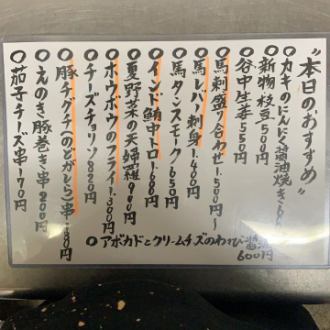 "本日のおすすめ"
○カキのにんにく醤油焼き
○新物枝豆500円
○谷中生姜550円
○馬刺盛り合わせ1.500円~
○馬レバー刺身1.400円
○馬タンスモーク650円
○インド鮪中トロ1.680円
○夏野菜の天婦羅900円
○ホウボウのフライ1.300円
○チーズチョリソ820円
○豚チグチ(のどがしら)串180円
○えのき豚巻き串200円
○茄子チーズ串170円
○アボカドとクリームチーズのわさび醤油
600円